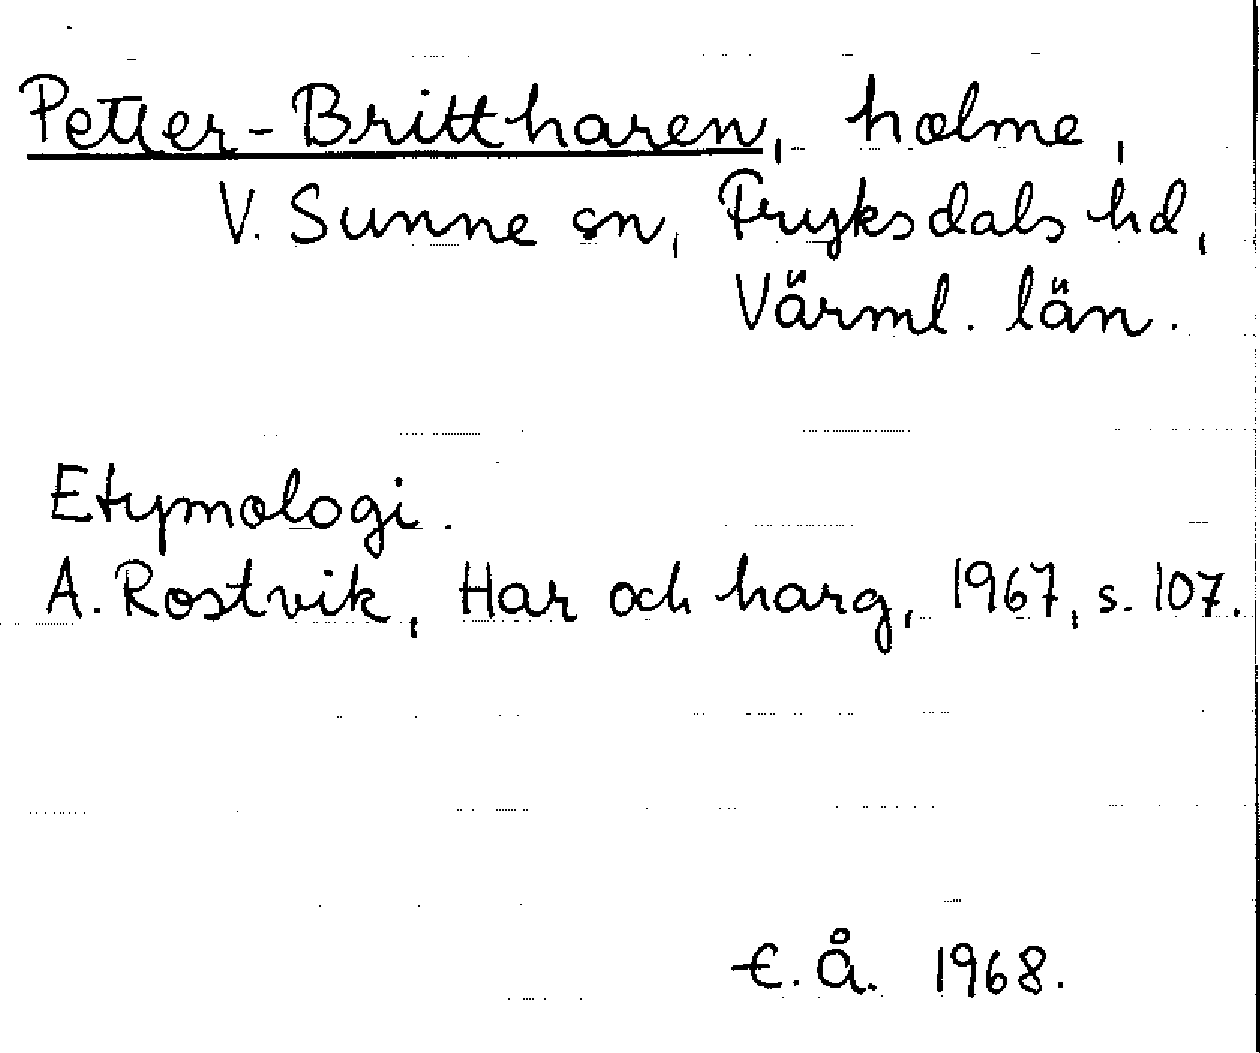 Petter-Brittharen, holme,
V. Sunne sn, Fryksdals hd,
Värml. län.
Etymologi.
A. Rostvik, Har och harg, 1967, s. 107.
E. Å. 1968.